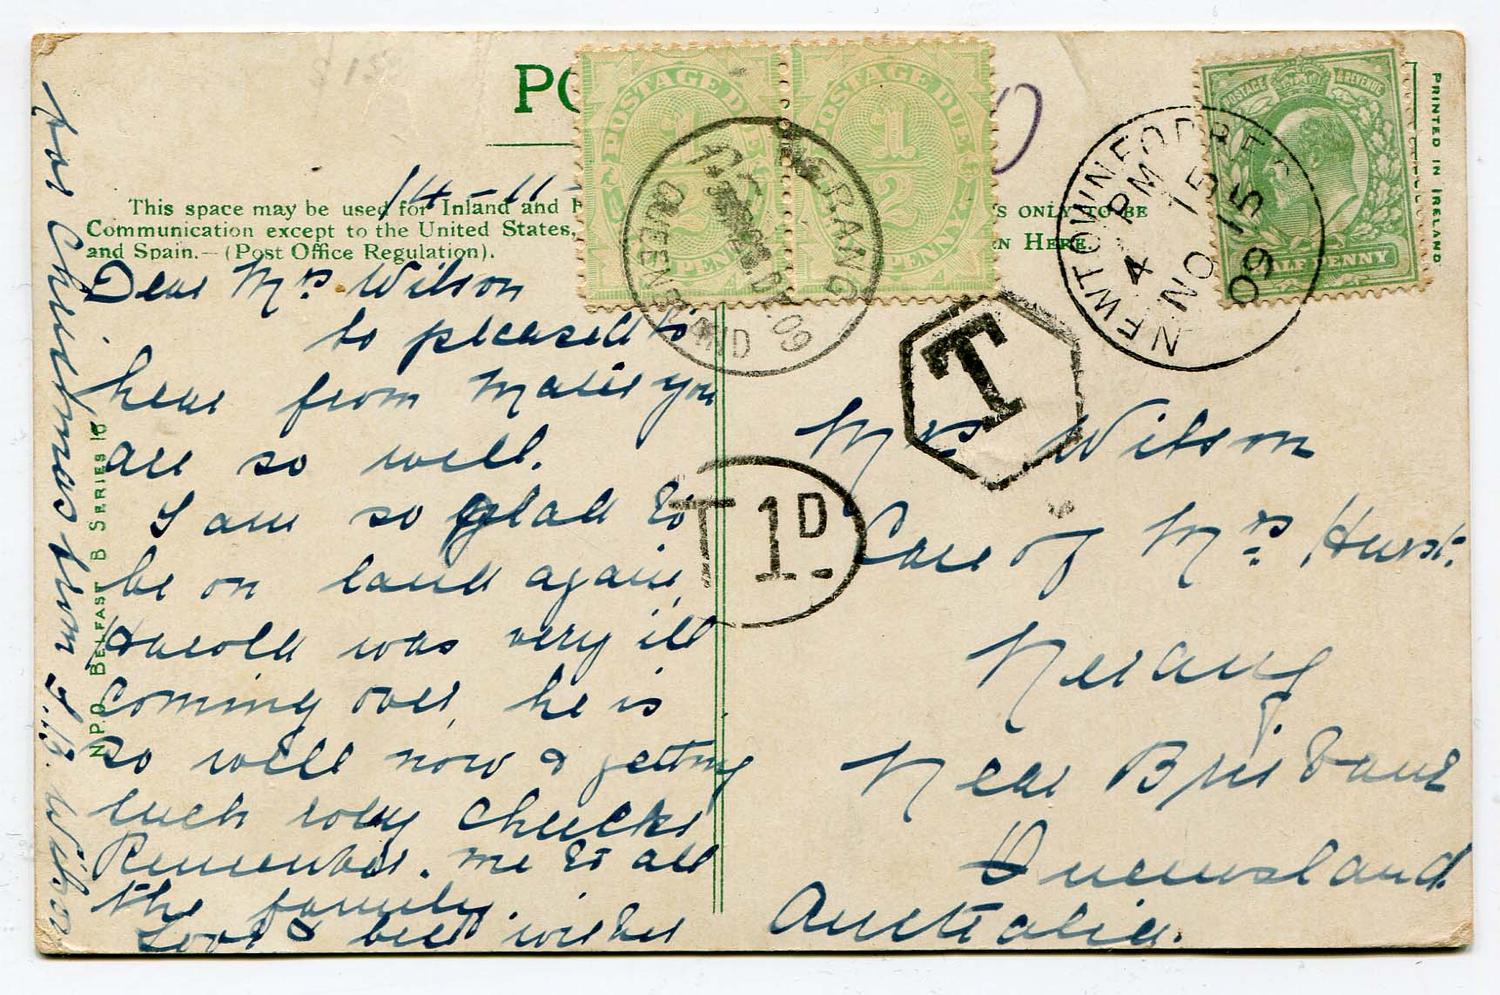 PO
14-11-
This space may be used for Inland and F
Communication except to the United States,
and Spain.—(Post Office Regulation).
Dear Mrs Wilson
to pleased to
hear from Mater you
are so well.
I am so glad to
be on land again
Harold was very ill
coming over, he is
so well now & getting
such rosy cheecks
Remember. me to all
the family.
Love & best wishes
for Christmas from J.B. Wilson
N.P.O. BELFAST B SERIES 16
POSTAGE DUE
1/2
PENNY
POSTAGE DUE
1/2
PENNY
NERANG
QUEENSLAND
09
S ONLY TO BE
N HERE.
POSTAGE & REVENUE
HALF PENNY
NEWTOWNFORBES
4 PM
NO 15
09
PRINTED IN IRELAND
T
T 1D.
Mrs Wilson
Care of Mrs Hurst.
Nerang
Near Brisbane
Queensland
Australia.